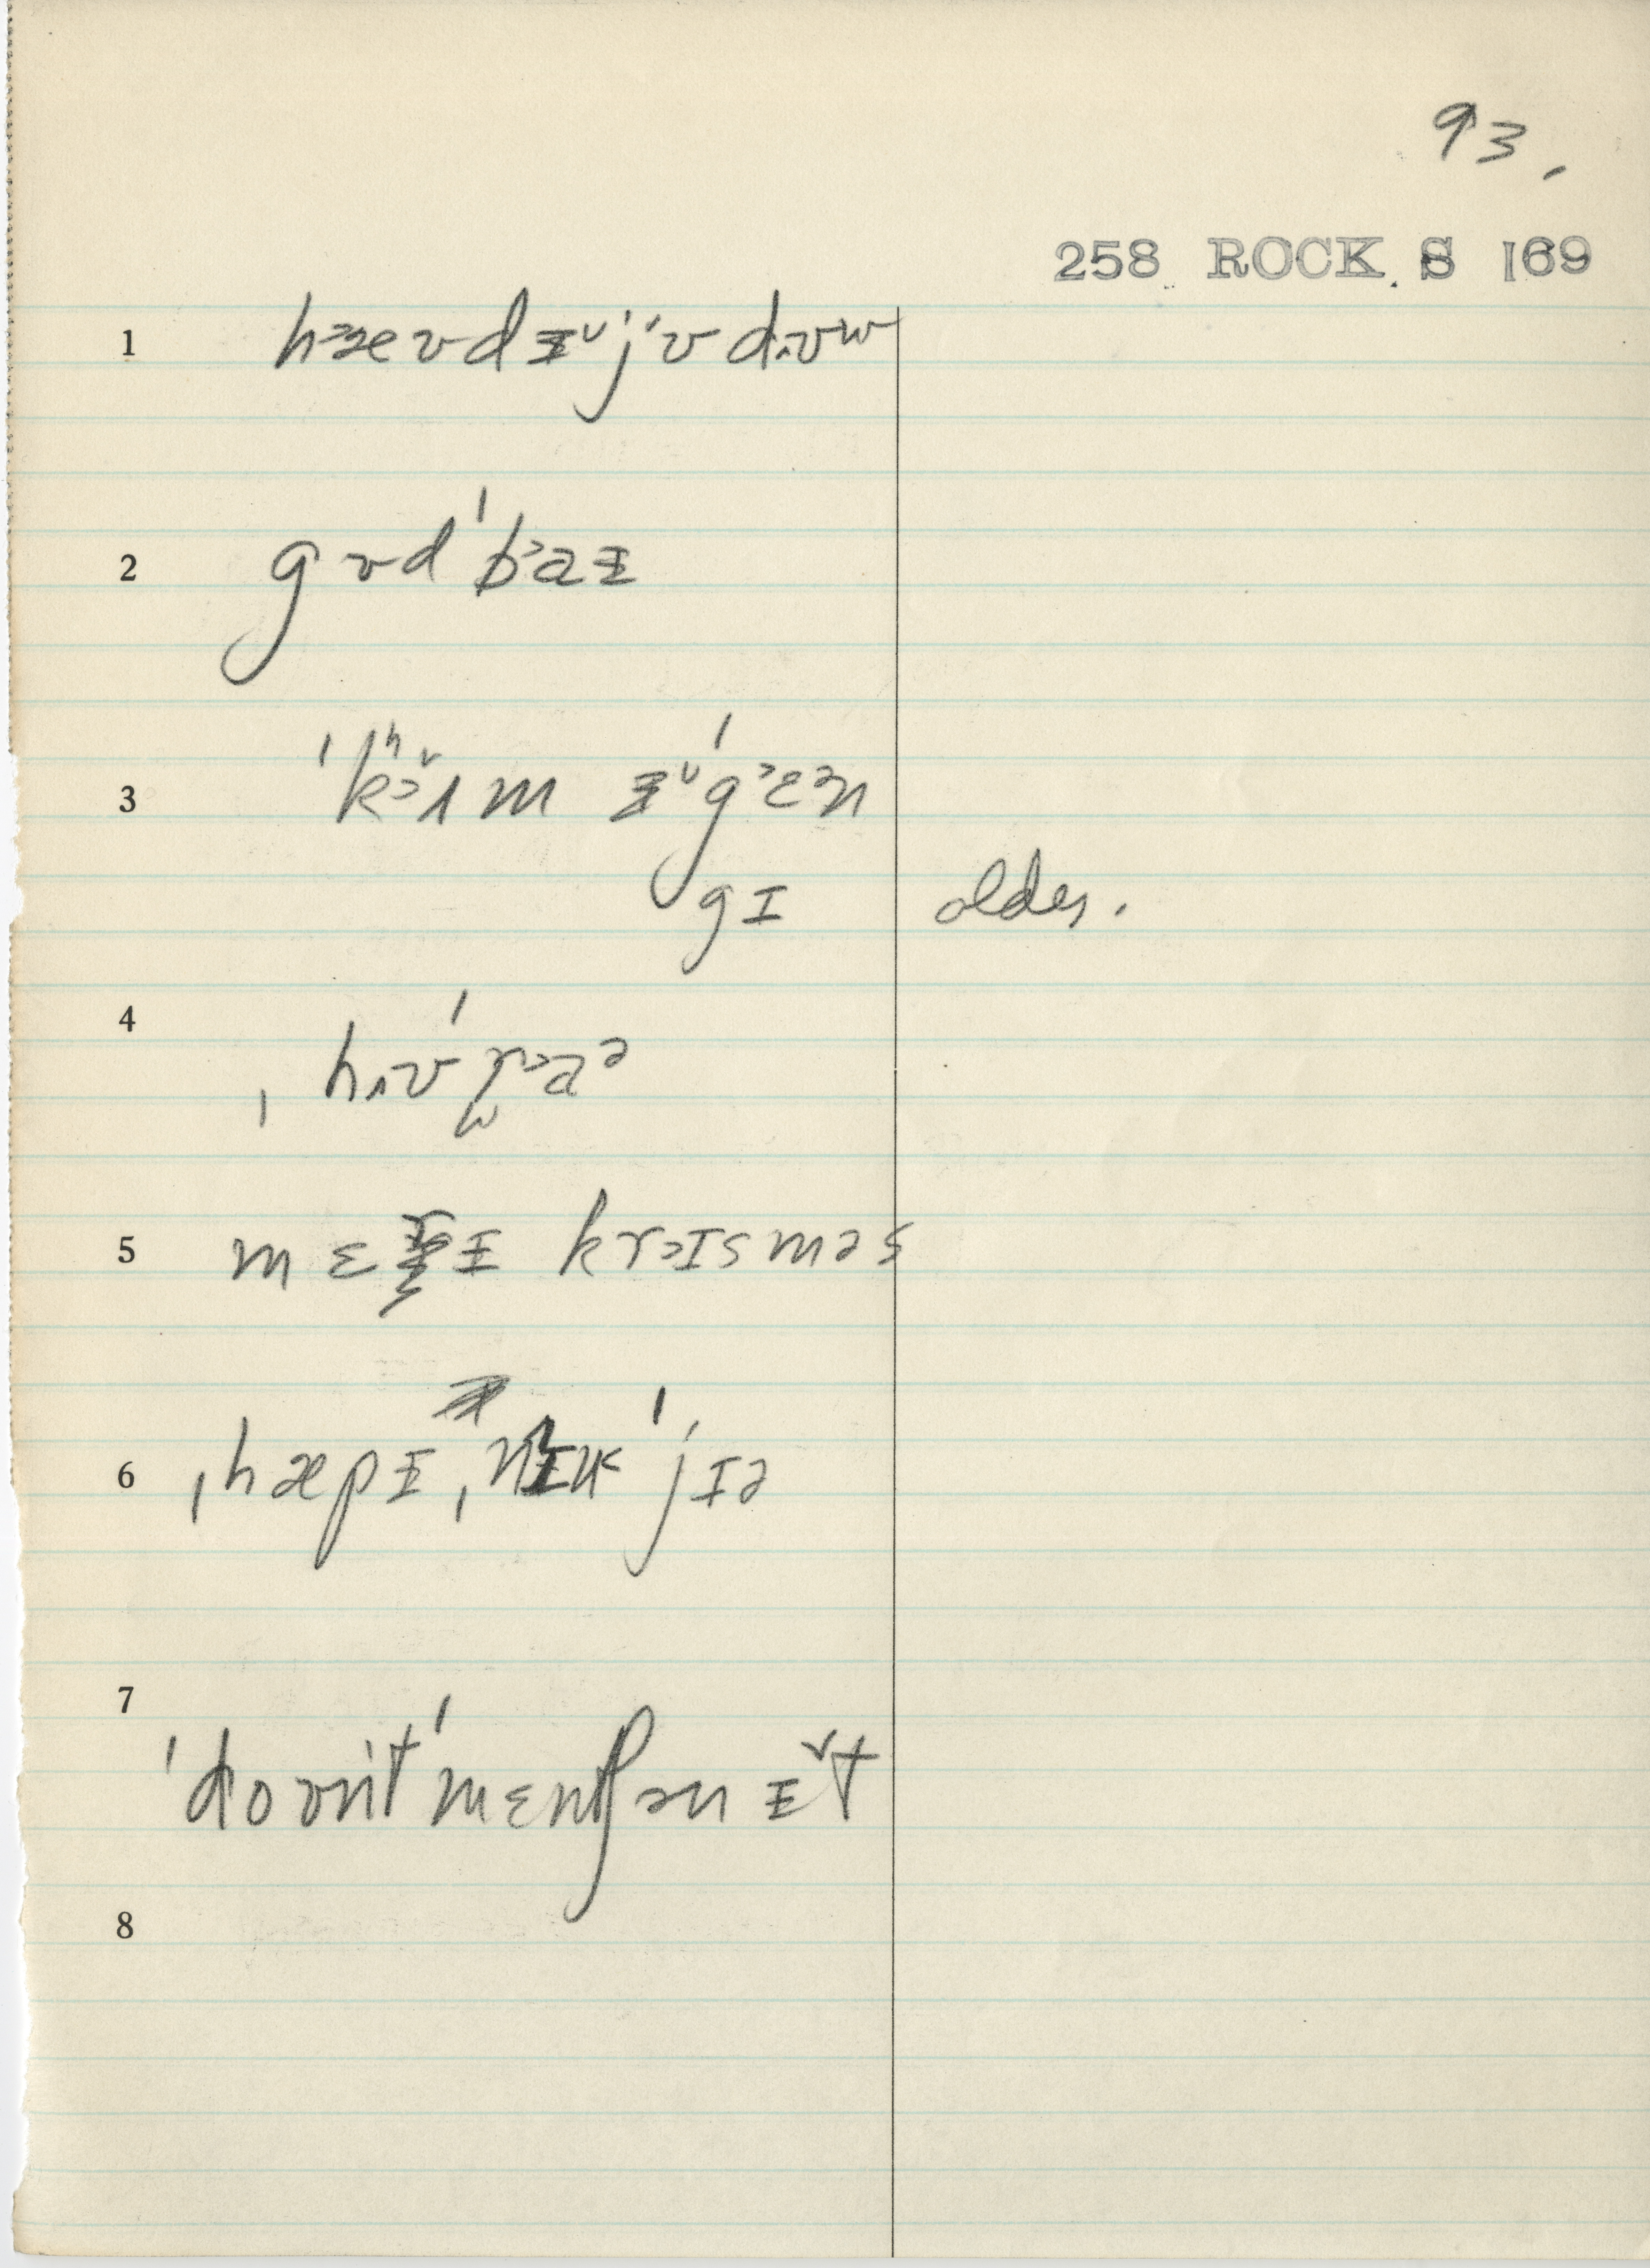 93.
258 ROCK. S 169
1 h˃æʊdᵻ˅jʊdɪʊw
2 gʊdˈb˃aᵻ
3 ˈkʰ˃ʌ˅m ᵻ˅ˈg˃ɛᵊn
gɪ older.
4 ˌhɪʊˈr˃aᵊ
5 mɛrᵻ kr˃ɪsməs
6 ˌhæpᵻ ˌnɪu ˈjɪə
7 ˈdoʊntˈmɛnʃən ᵻ˅t
8